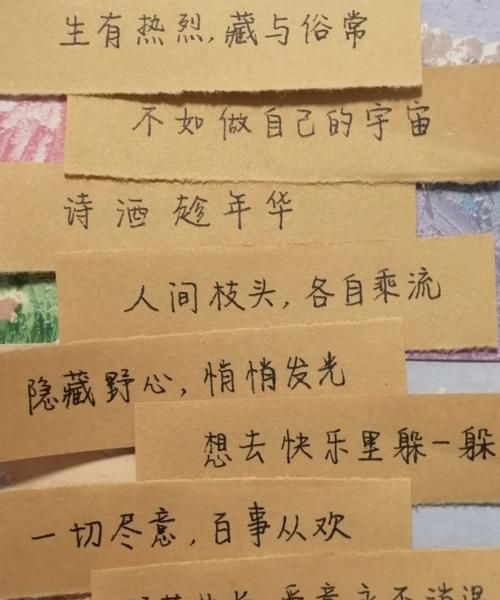 生有热烈,藏与俗常
不如做自己的宇宙
诗酒趁年华
人间枝头,各自乘流
隐藏野心,悄悄发光
想去快乐里躲一躲
一切尽意,百事从欢